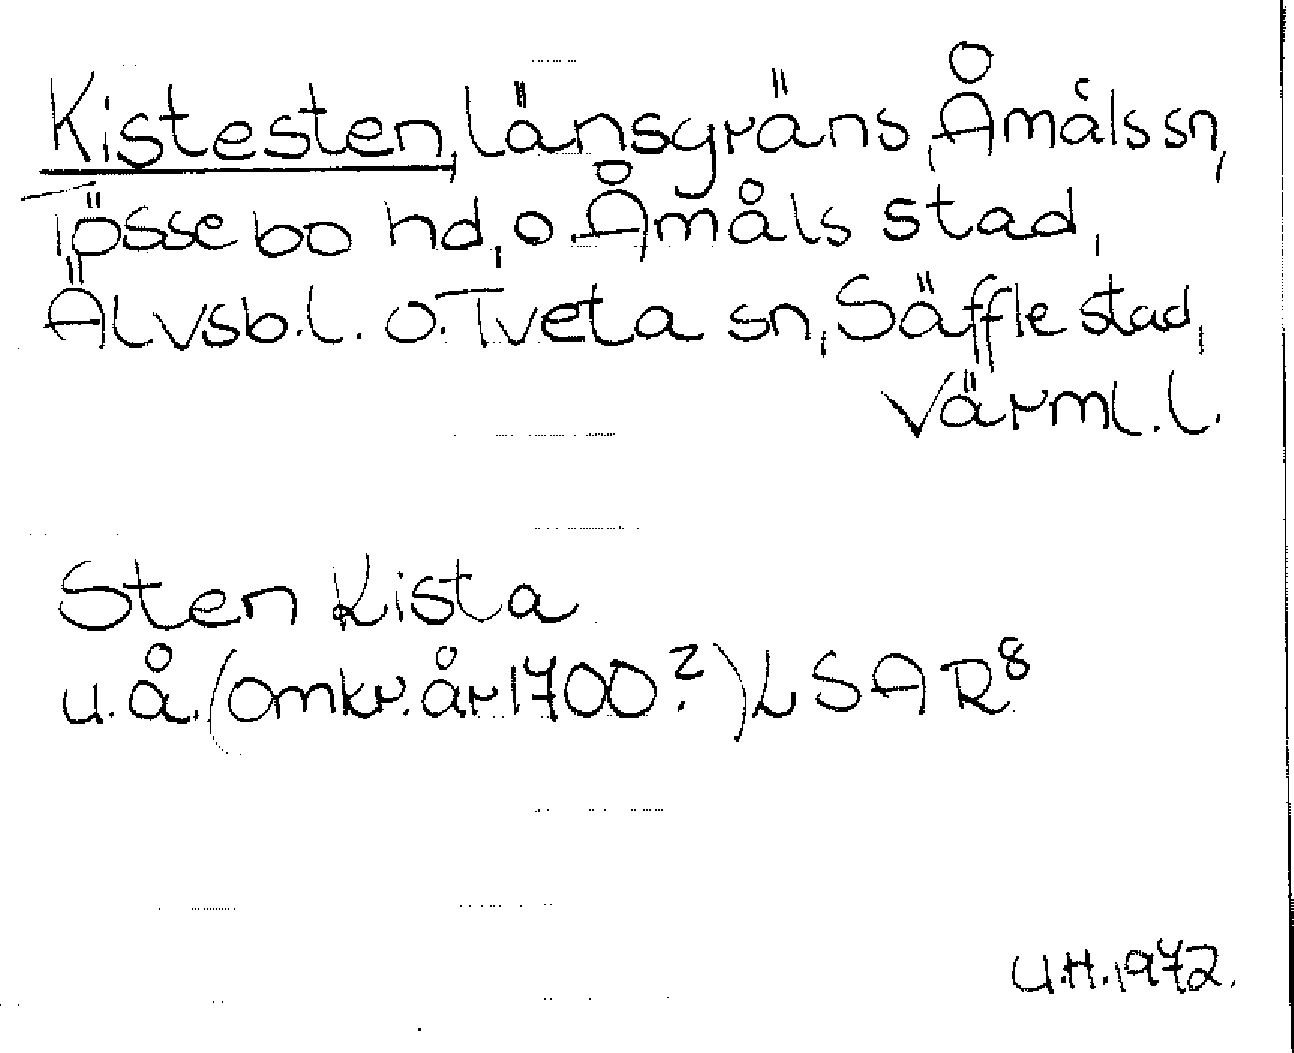 Kistesten, länsgräns, Åmåls sn,
Tössebo hd, o Åmåls stad,
Älvsb.l. o. Tveta sn, Säffle stad,
Värml.l.
Sten Kista
u.å. (omkr. år 1700?) LSA R8
U.H. 1972.